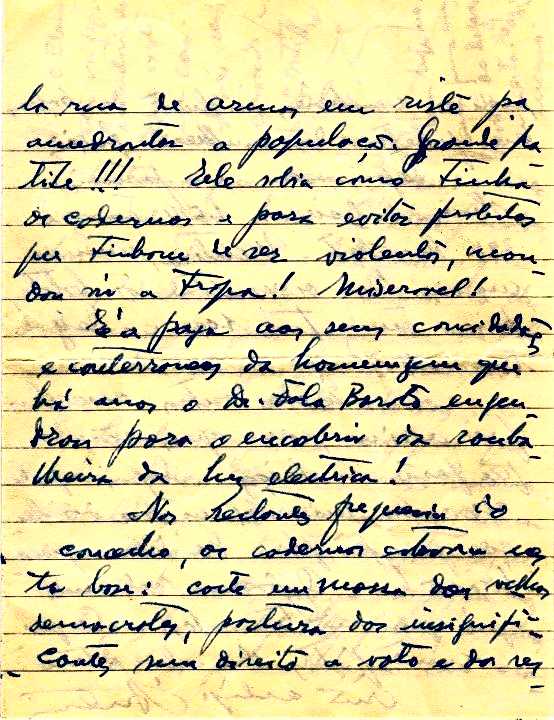 la rua de armas em riste pa
amedrontar a população. Grande pa
tife!!! Ele sabia como tinha
os cadernos e para evitar protestos
que tinham de ser violentos, man-
dou vir a tropa! Miseravel!
É a paga aos seus concidadãos
e conterraneos da homenagem que
há anos o Dr. Sola Barata engen
drou para o encobrir da rouba-
lheira da luz electrica!
Nas freguesias
concelho, os cadernos
ta base: corte em massa dos velhos
democratas, dos insignifi-
cantes sem direito a voto e dos res-